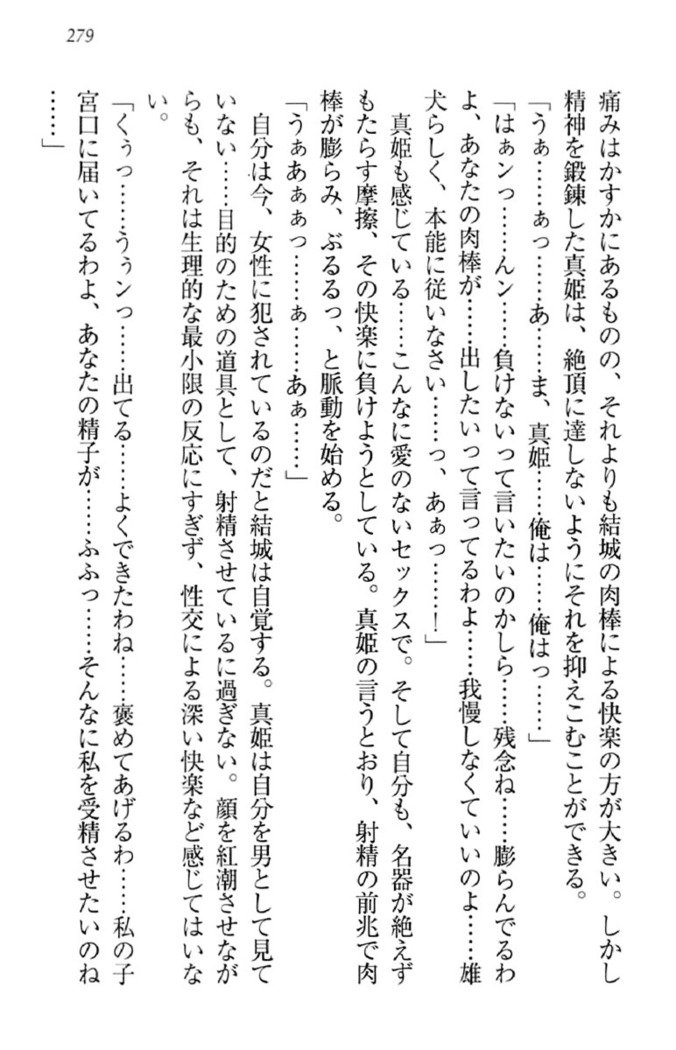 279
痛みはかすかにあるものの、それよりも結城の肉棒による快楽の方が大きい。しかし
精神を鍛錬した真姫は、絶頂に達しないようにそれを抑えこむことができる。
「うぁ……ぁっ……あ……ま、真姫……俺は……俺はっ……」
「はぁンっ……んン……負けないって言いたいのかしら……残念ね……膨らんでるわ
よ、あなたの肉棒が……出したいって言ってるわよ……我慢しなくていいのよ……雄
犬らしく、本能に従いなさい……っ、あぁっ……！」
真姫も感じている……こんなに愛のないセックスで。そして自分も、名器が絶えず
もたらす摩擦、その快楽に負けようとしている。真姫の言うとおり、射精の前兆で肉
棒が膨らみ、ぶるるっ、と脈動を始める。
「うぁあぁぁっ……ぁ……あぁ……」
自分は今、女性に犯されているのだと結城は自覚する。真姫は自分を男として見て
いない……目的のための道具として、射精させているに過ぎない。顔を紅潮させなが
らも、それは生理的な最小限の反応にすぎず、性交による深い快楽など感じてはいな
い。
「くぅっ……うぅンっ……出てる……よくできたわね……褒めてあげるわ……私の子
宮口に届いてるわよ、あなたの精子が……ふふっ……そんなに私を受精させたいのね
……」